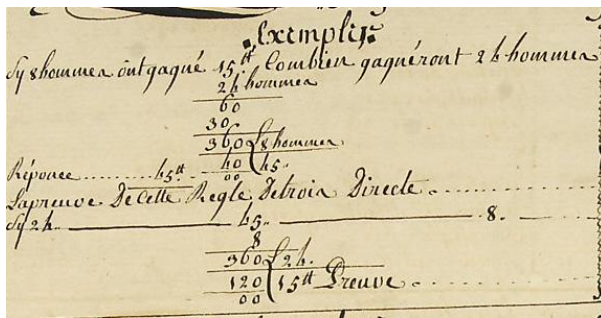 Exemples
Sy 8 hommes ont gagné 15tt Combien gagnéront 24 hommes
24 hommes
60
30.
360 8 hommes
40 45.
00
Réponce ......... 45tt
Lapreuve De Cette Regle Detrois Directe
Sy 24. 45. 8.
8
360 24.
120 15tt Preuve
00